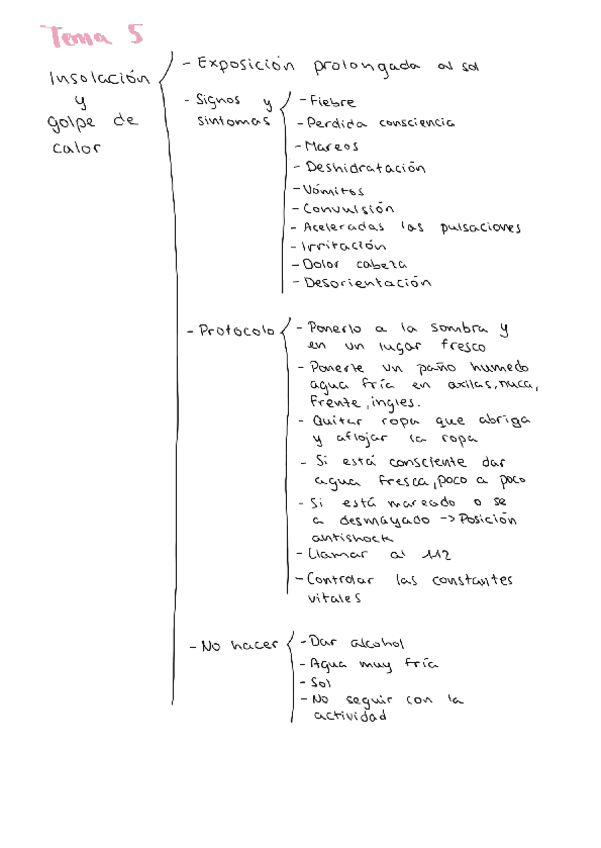 Tema 5
Insolación
y
golpe de
calor
- Exposición prolongada al sol
- Signos y
sintomas
- Fiebre
- Perdida consciencia
- Mareos
- Deshidratación
- Vómitos
- Convulsión
- Aceleradas las pulsaciones
- Irritación
- Dolor cabeza
- Desorientación
- Protocolo
- Ponerlo a la sombra y
en un lugar fresco
- Ponerle un paño humedo
agua fría en axilas, nuca,
frente, ingles.
- Quitar ropa que abriga
y aflojar la ropa
- Si está consciente dar
agua fresca, poco a poco
- Si está mareado o se
a desmayado -> Posición
antishock
- Llamar al 112
- Controlar las constantes
vitales
- No hacer
- Dar alcohol
- Agua muy fría
- Sol
- No seguir con la
actividad